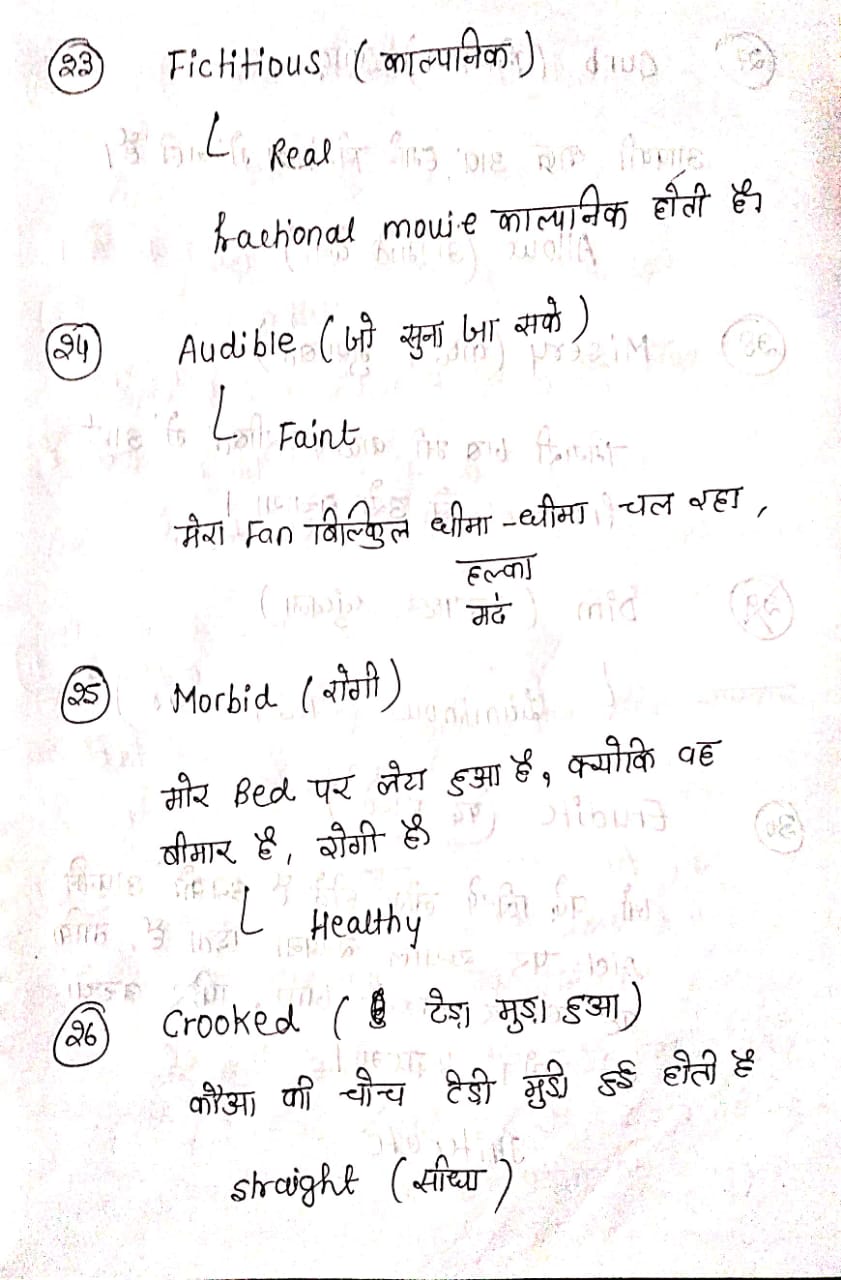 23 Fictitious (काल्पनिक)
Real
fractional movie काल्पनिक होती है।
24 Audible (जो सुना जा सके)
Faint
मेरा Fan बिल्कुल धीमा-धीमा चल रहा,
हल्का
मदं
25 Morbid (रोगी)
मोर Bed पर लेटा हुआ है, क्योकि वह
बीमार है, रोगी है
Healthy
26 Crooked (टेड़ा मुड़ा हुआ)
कौआ की चोन्च टेडी मुडी हुई होती है
straight (सीधा)